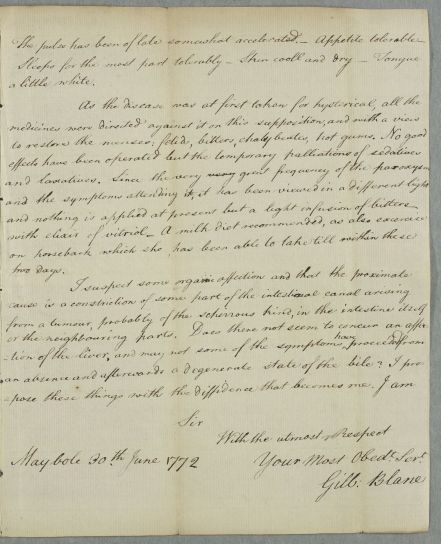 The pulse has been of late somewhat accelerated. – Appetite tolerable
Sleeps for the most part tolerably – Skin cooll and dry – Tongue
a little white.
As the disease was at first taken for hysterical, all the
medicines were directed against it on this supposition, and with a view
to restore the menses: fetid, bitters, chalybeates, hot gums. No good
effects have been operated but the temporary palliations of sedatives
and laxatives. Since the very great frequency of the paroxysm
and the symptoms attending it, it has been viewed in a different light
and nothing is applied at present but a light infusion of bitters
with elixir of vitriol. A milk diet recommended, as also exercise
on horseback which she has been able to take till within these
two days.
I suspect some organic affection and that the proximate
cause is a constriction of some part of the intestinal canal arising
from a tumour, probably of the schirrous kind, in the intestine itself
or the neighbouring parts. Does there not seem to concur an affec
-tion of the liver, and may not some of the symptoms have proceeded from
an absence and afterwards a degenerate state of the bile? I pro
-pose these things with the diffidence that becomes me. I am
Sir
With the utmost Respect
Maybole 30th June 1772 Your Most Obedt. Servt.
Gilb: Blane